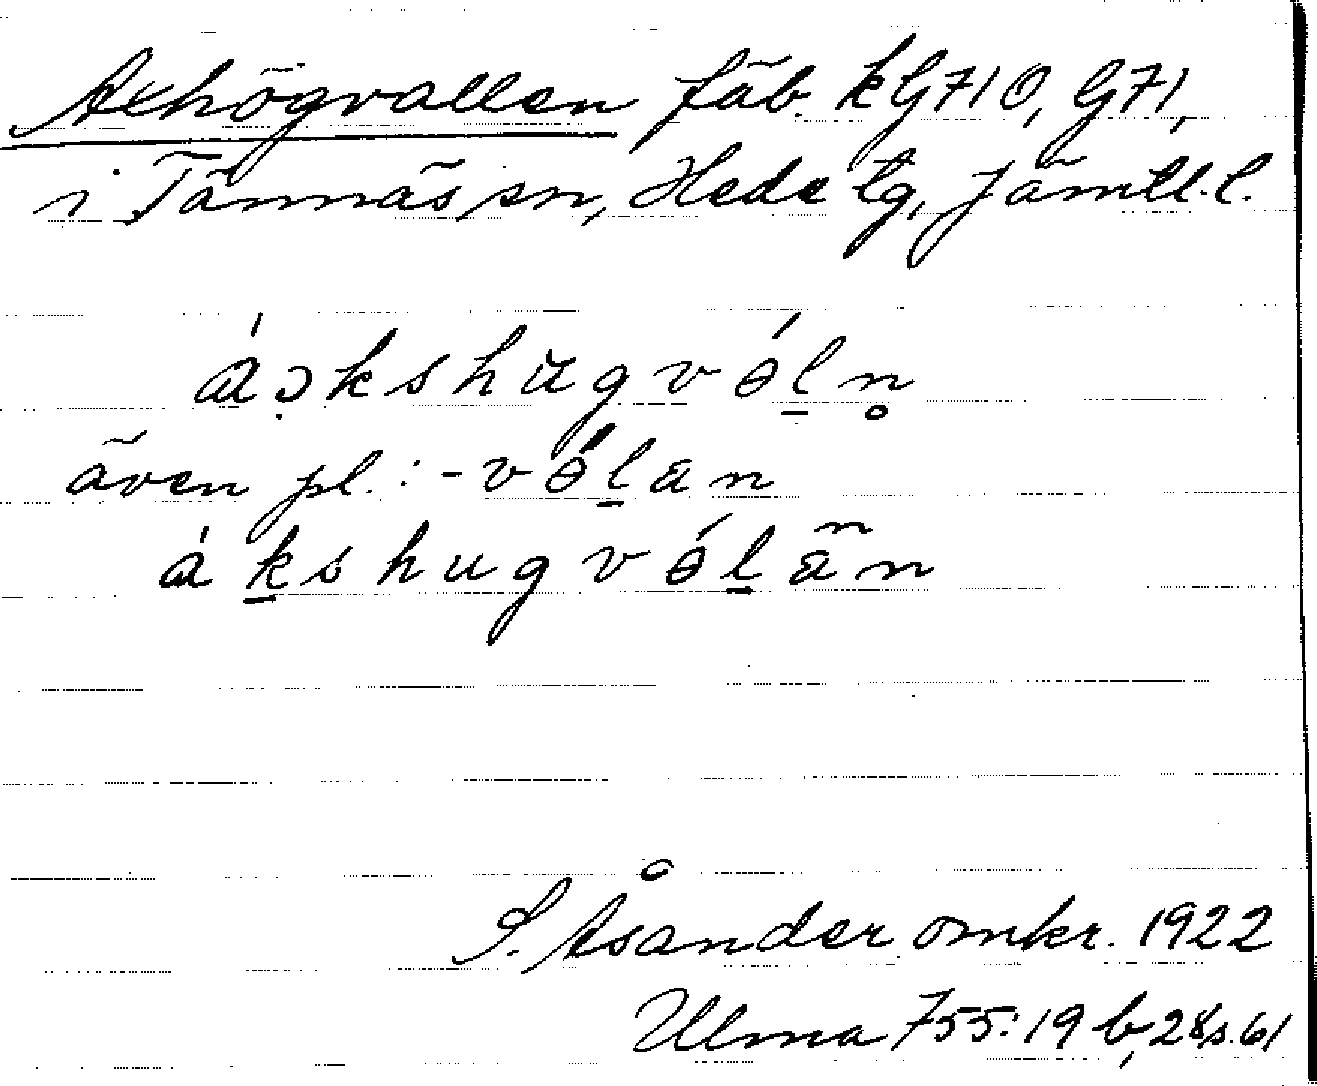 Axhögvallen fäb. kG710, G71,
i Tännäs sn, Hede tg, Jämtl. l.
áɔ̣kshŭgvǿl̠n̥
även pl.: -vǿl̠an
ák̠shugvǿl̠än
S. Åsander omkr. 1922
Ulma 755:19 b, 28 s. 61